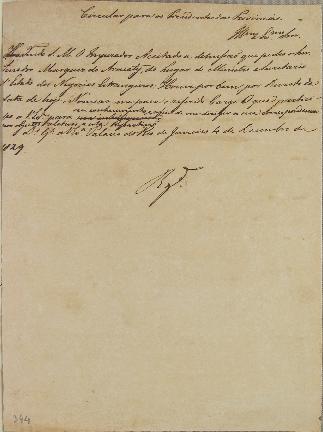 Circular para os Presidentes das Provincias.
Illmo. e Exmo. Snr.
Havendo S. M. O Imperador Aceitado a demissão que pedio o Sr.
Senador Marquez de Aracaty do lugar de Ministro e Secretario
d'Estado dos Negocios Estrangeiros: Houve por bem, por Decreto da
data de hoje Nomear me para o referido Cargo. O que participo
a V. Ex. para seu conhecimento
D.s G.e a V. Ex.ª Palacio do Rio de Janeiro 4 de Dezembro de
1829
394